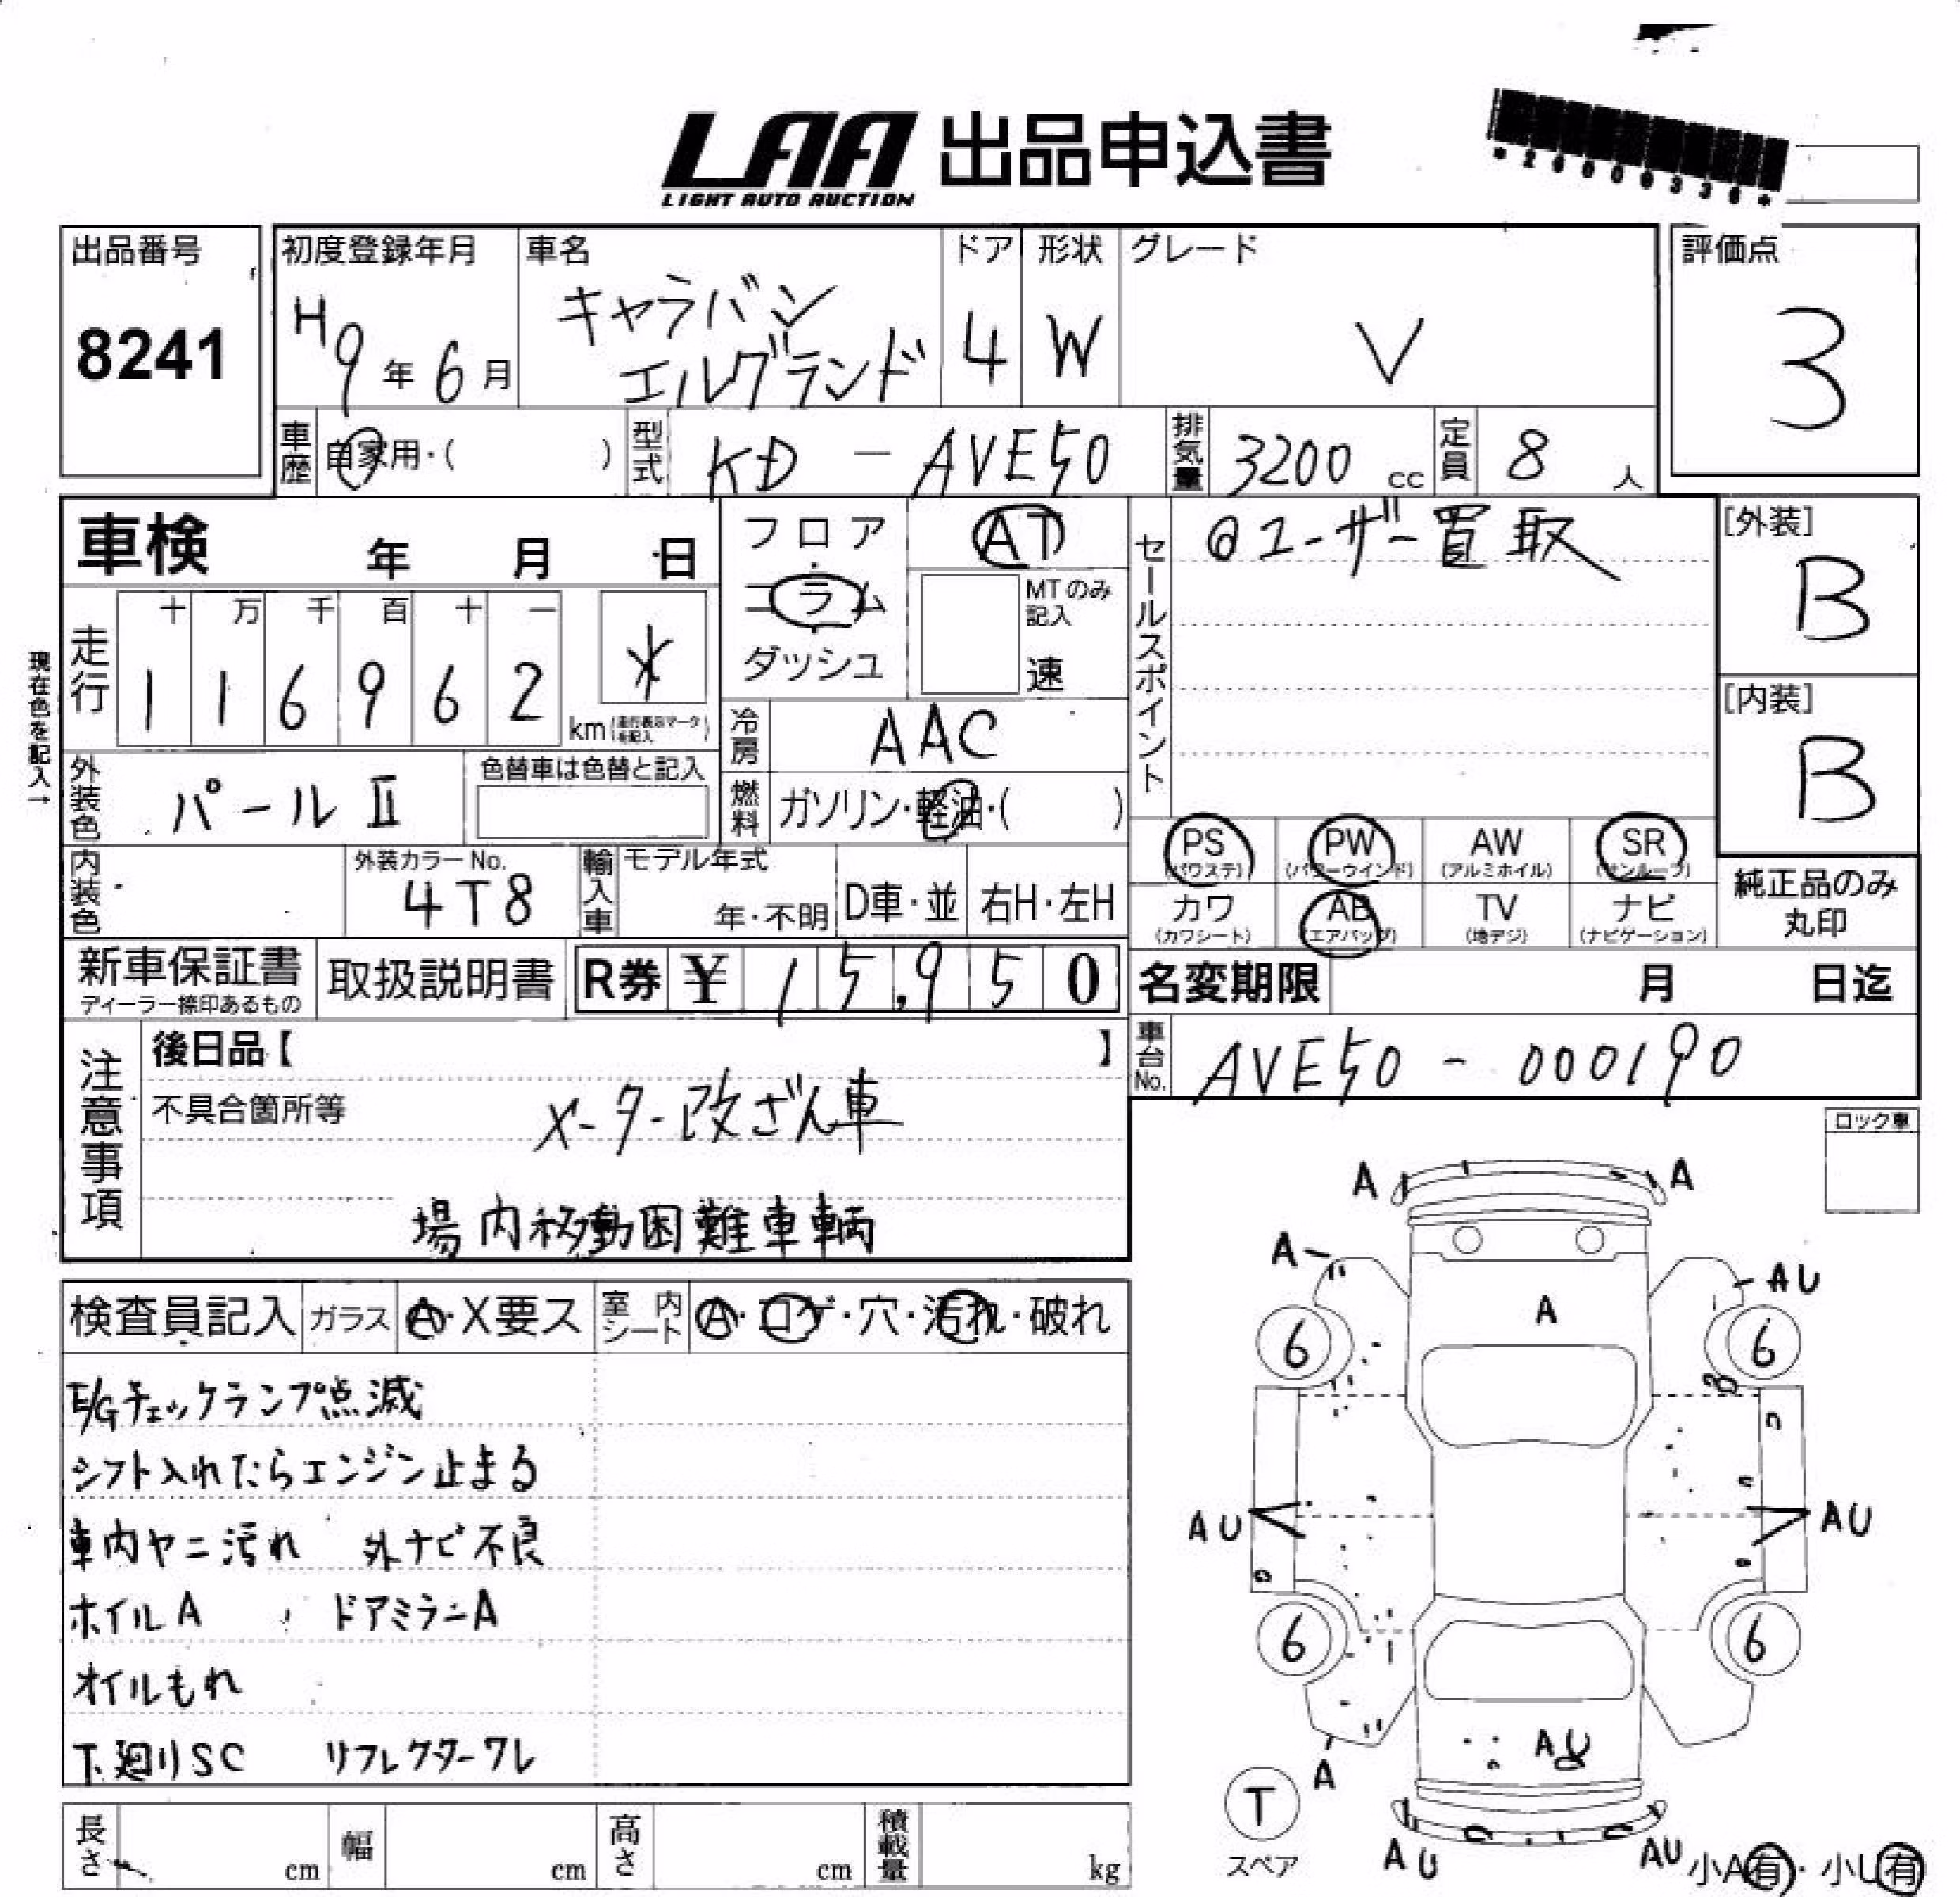 LAA 出品申込書
LIGHT AUTO AUCTION
*2000033*
出品番号
8241
初度登録年月
H9年6月
車名
キャラバン
エルグランド
ドア
4
形状
W
グレード
V
評価点
3
車歴 自家用・( )
型式 KD - AVE50
排気量 3200 cc
定員 8 人
車検 年 月 日
フロア
コラム
ダッシュ
AT
MTのみ記入
速
セールスポイント
@ユーザー買取
[外装]
B
[内装]
B
現在色を記入→
走行
十 万 千 百 十 一
1 1 6 9 6 2
*
km(走行表示マークを記入)
冷房 AAC
外装色 パールⅡ
色替車は色替と記入
燃料 ガソリン・軽油・( )
PS (パワステ)
PW (パワーウインド)
AW (アルミホイル)
SR (サンルーフ)
カワ (カワシート)
AB (エアバッグ)
TV (地デジ)
ナビ (ナビゲーション)
純正品のみ
丸印
内装色
外装カラーNo.
4T8
輸入車
モデル年式
年・不明
D車・並
右H・左H
新車保証書
ディーラー捺印あるもの
取扱説明書
R券 ¥ 15,950
名変期限 月 日迄
車台No. AVE50 - 000190
注意事項
後日品【 】
不具合箇所等
メーター改ざん車
場内移動困難車輌
ロック車
検査員記入
ガラス A・X要ス
室内シート A・コゲ・穴・汚れ・破れ
E/Gチェックランプ点滅
シフト入れたらエンジン止まる
車内ヤニ汚れ 外ナビ不良
ホイルA ドアミラーA
オイルもれ
下廻りSC リフレクターワレ
A A
A AU
A
6 6
AU AU
6 6
AU
A
T
スペア
AU AU
小A有・小U有
長さ cm
幅 cm
高さ cm
積載量 kg